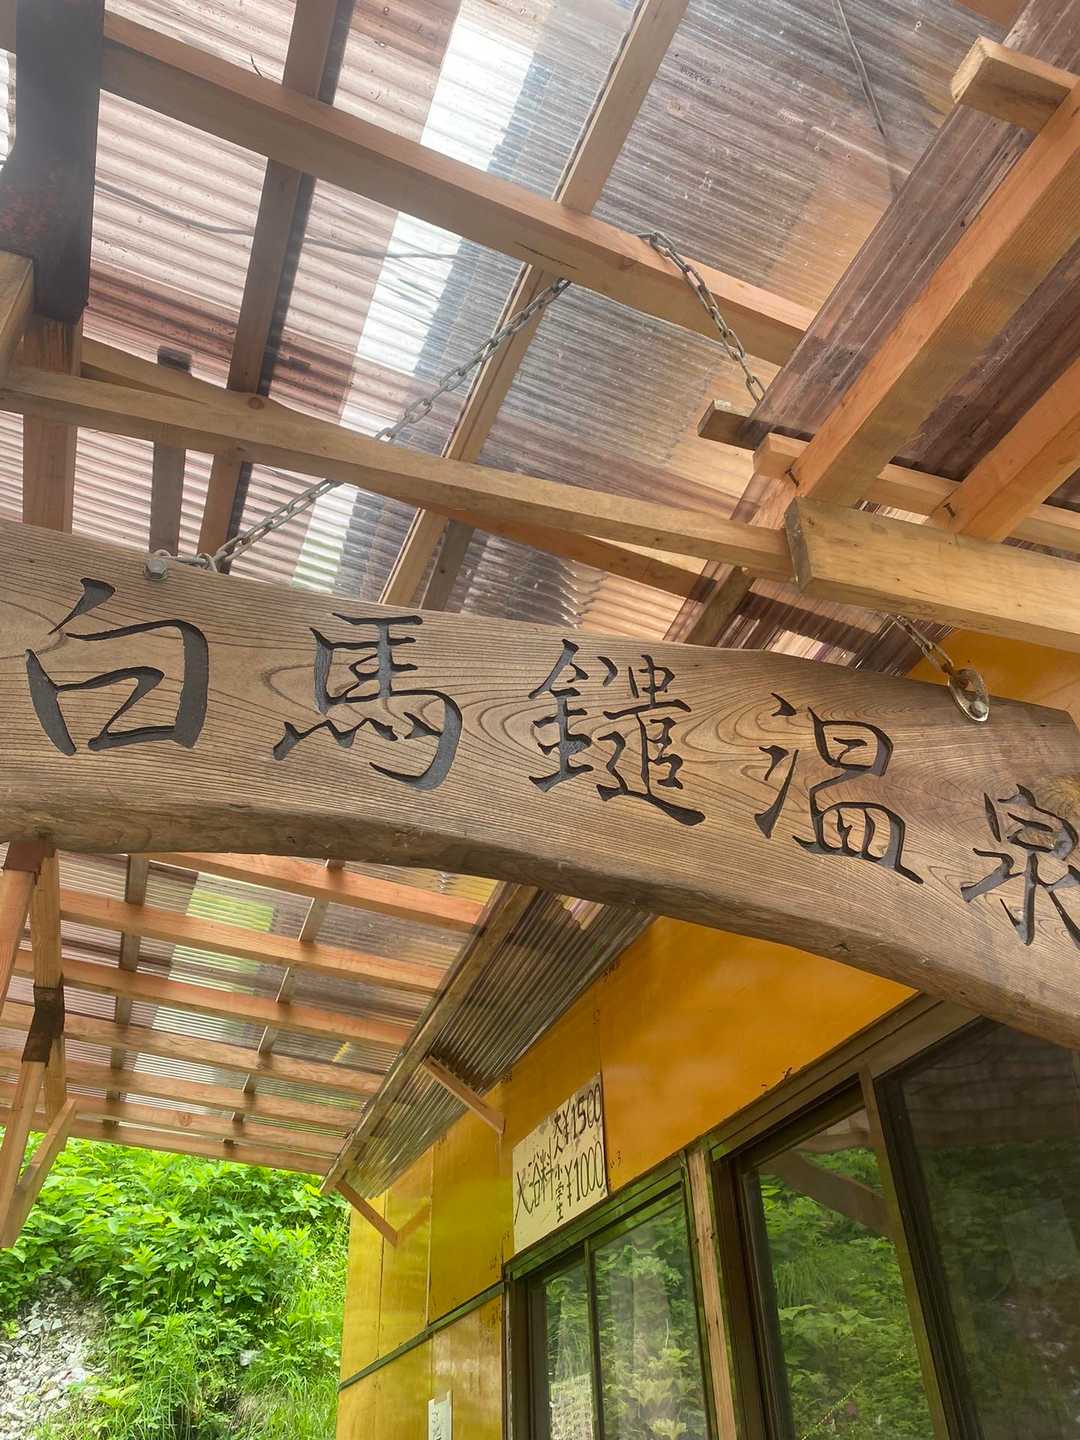 白馬鑓温泉
入浴料 大 ¥1500
¥1000